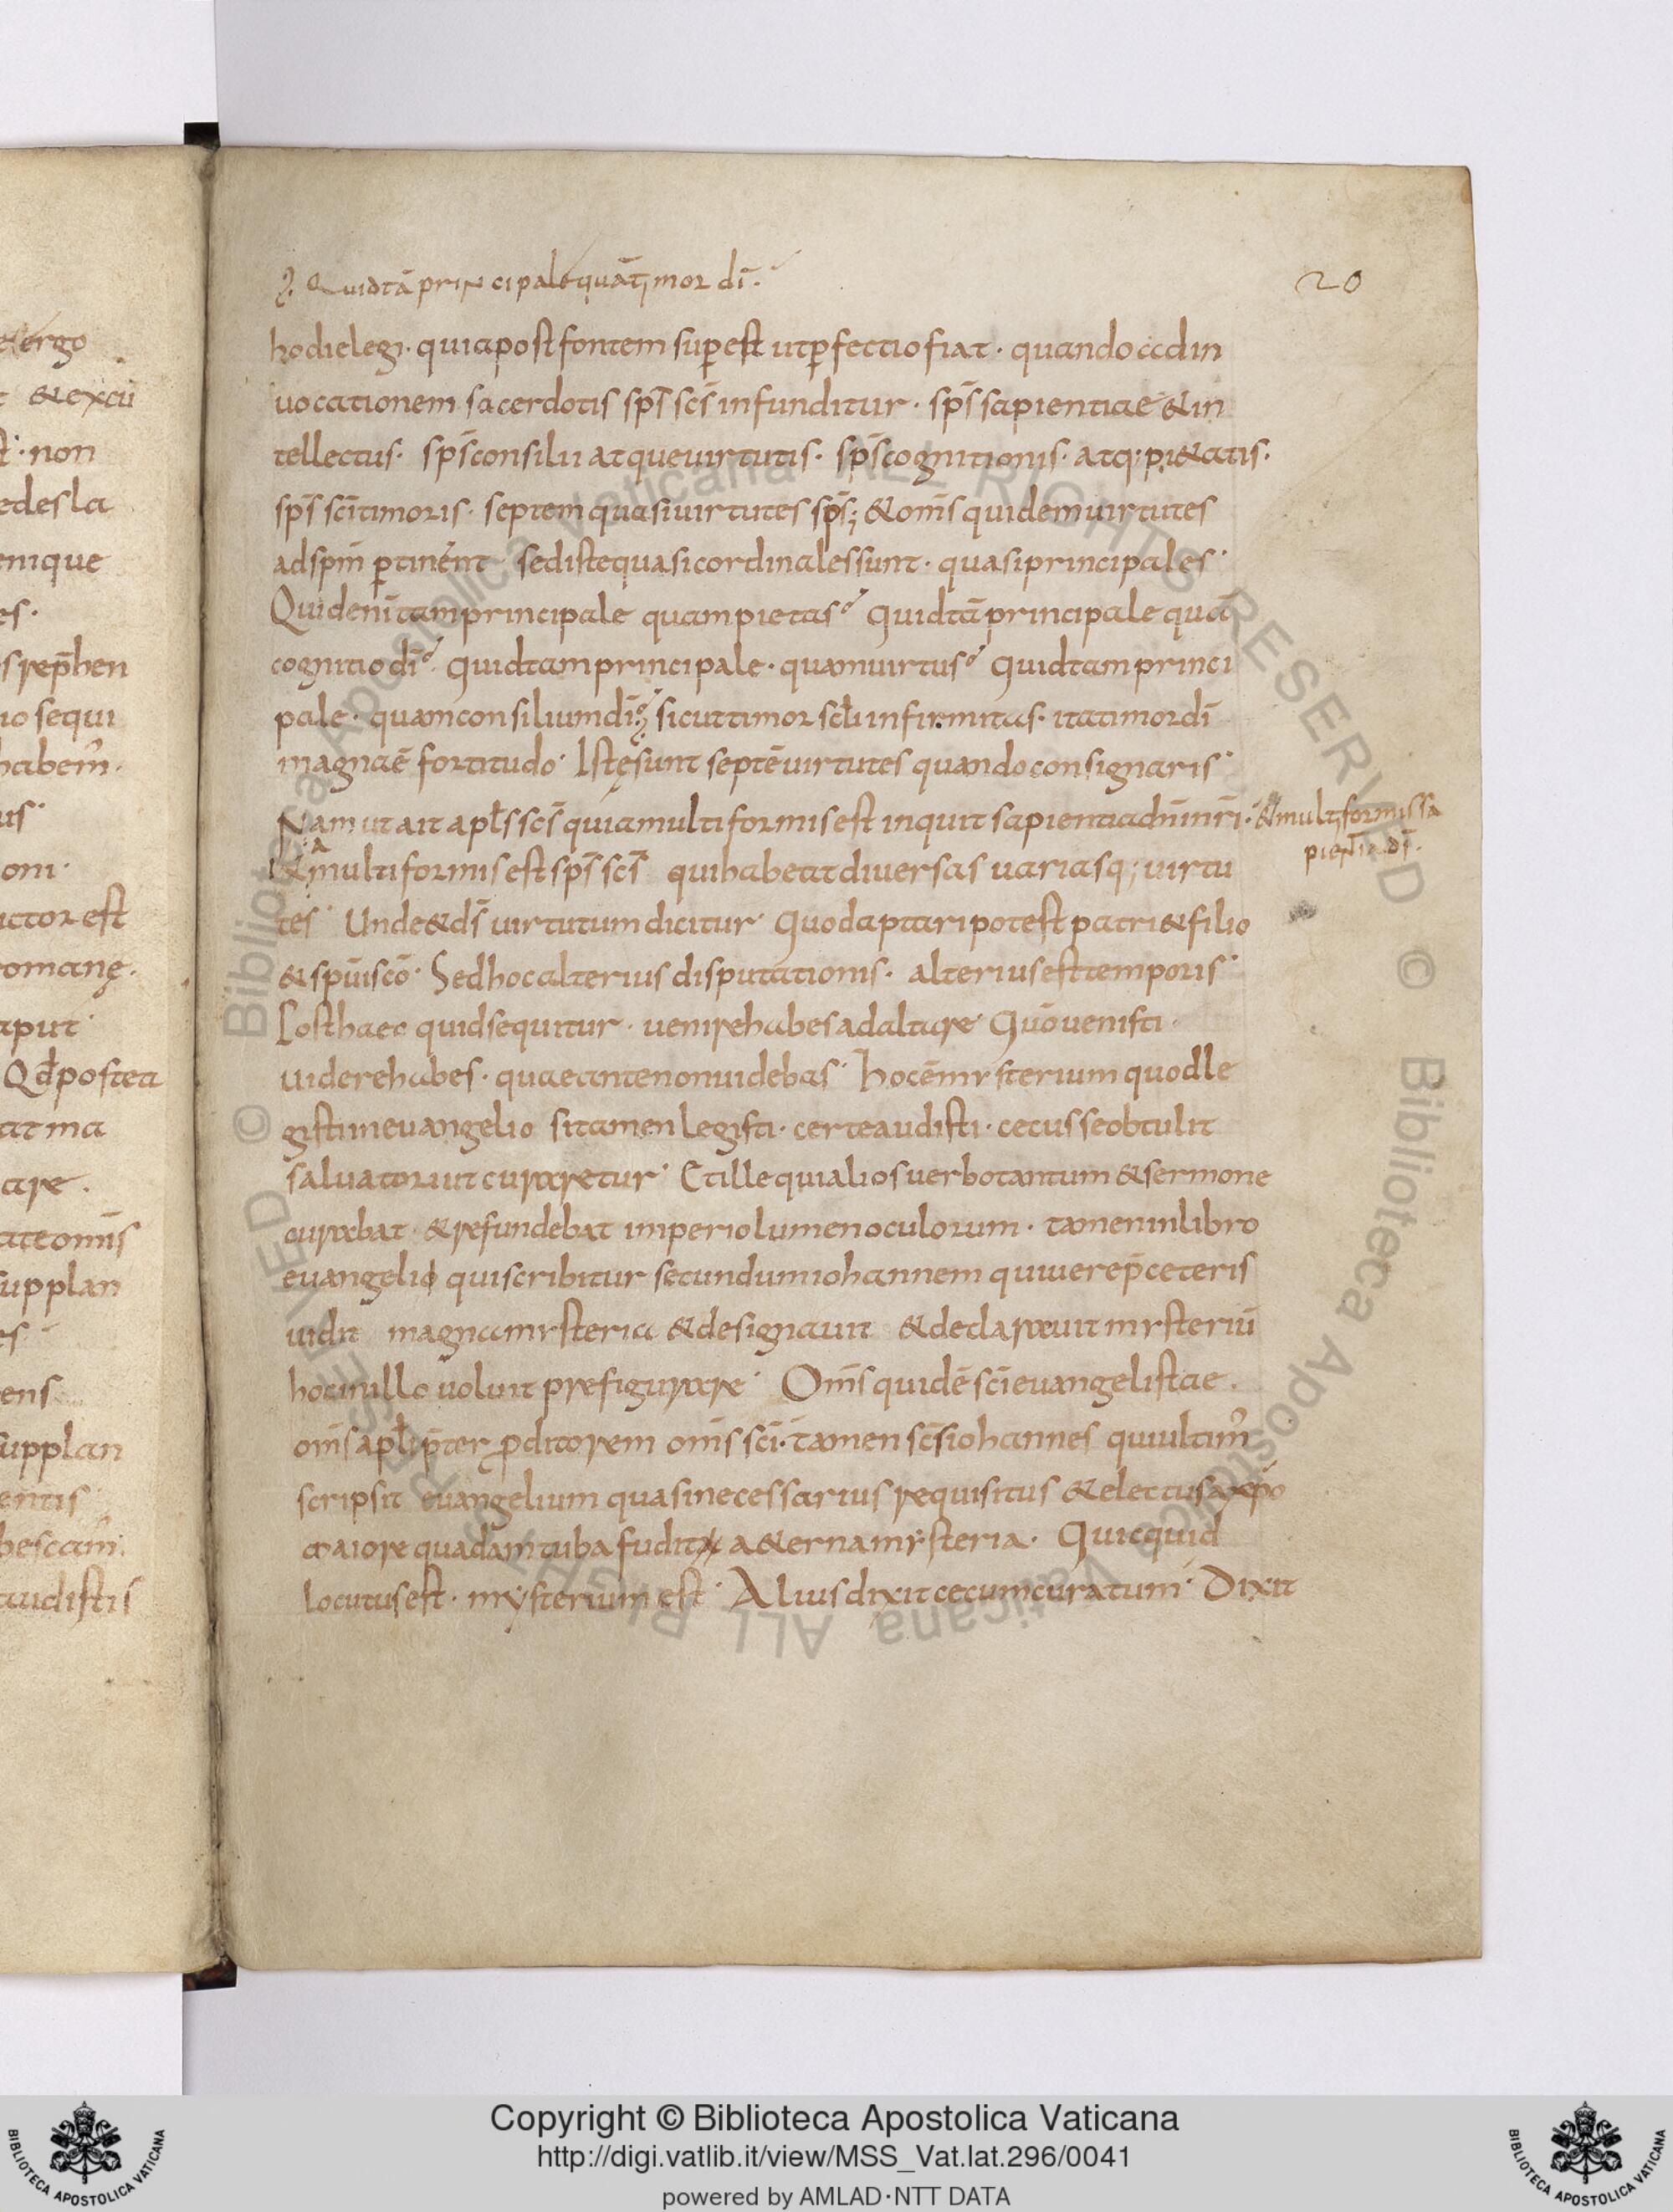 Quid tā principale quā timor dī.
20
hodie legi. quia post fontem suꝑest ut ꝑfectio fiat. quando ad in
uocationem sacerdotis sp̄s sc̄s infunditur. sp̄s sapientiae & in
tellectus. sp̄s consilii atque uirtutis. sp̄s cognitionis. atq; pi&atis.
sp̄s sc̄i timoris. septem quasi uirtutes sp̄s; & om̄s quidem uirtutes
ad sp̄m ꝑtinent sed iste quasi cordinales sunt. quasi principales.
Quid eni tam principale quam pietas? Quid tā principale quā
cognitio dī? Quid tam principale. quam uirtus? Quid tam princi
pale. quam consilium dī? sicut timor scl̄i infirmitas. ita timor dī
magna ē fortitudo. Istę sunt septē uirtutes quando consignaris.
Nam ut ait apl̄s sc̄s quia multiformis est inquit sapientia dn̄i nr̄i.
& multiformis sa
pientia dī.
& multiformis est sp̄s sc̄s qui habeat diuersas uariasq; uirtu
tes. Unde & ds̄ uirtutum dicitur. Quod aptari potest patri & filio
& sp̄ui sc̄o. Sed hoc alterius disputationis. alterius est temporis.
Post haec quid sequitur. uenire habes ad altare. Quō uenisti.
uidere habes. quae ante non uidebas. hoc ē mysterium quod le
gisti in euangelio si tamen legisti. certe audisti. cecus se obtulit
saluatori ut curaretur. Et ille qui alios uerbo tantum & sermone
curabat. & refundebat imperio lumen oculorum. tamen in libro
euangelio qui scribitur secundum iohannem qui uere p̄ ceteris
uidit magna mysteria & designauit & declarauit mysteriū
hoc in illo uoluit prefigurare. Om̄s quidē sc̄i euangelistae.
om̄s apl̄i p̄ter ꝓditorem om̄s sc̄i. tamen sc̄s iohannes qui ultim᾽
scripsit euangelium quasi necessarius requisitus & electus a xp̄o
maiore quadam tuba fudit a&erna mysteria. Quicquid
locutus est. mysterium est. Alius dixit cecum curatum. Dixit
ergo
& excū
non
edes la
enique
es.
s rep̄hen
io sequi
habem᾽.
us.
oni.
ictor est
romanę.
aput
Qd̄ postea
at ma
are.
ate om̄s
supplan
es.
ens
supplan
entis
bescam᾽.
audistis
Copyright © Biblioteca Apostolica Vaticana
http://digi.vatlib.it/view/MSS_Vat.lat.296/0041
powered by AMLAD·NTT DATA
BIBLIOTECA APOSTOLICA VATICANA
BIBLIOTECA APOSTOLICA VATICANA
© Biblioteca Apostolica Vaticana ALL RIGHTS RESERVED
© Biblioteca Apostolica Vaticana ALL RIGHTS RESERVED